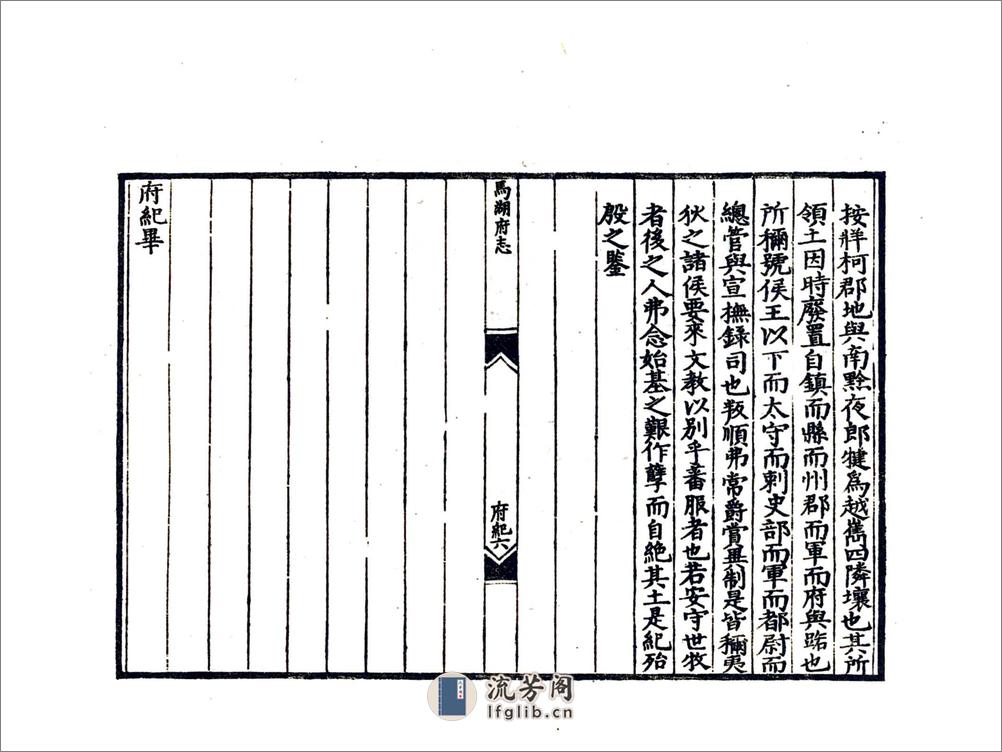 按牂柯郡地與南黔夜郎犍為越嶲四隣壤也其所
領土因時廢置自鎮而縣而州郡而軍而府與路也
所稱號侯王以下而太守而刺史部而軍而都尉而
總管與宣撫錄司也叛順弗常爵賞無制是皆稱夷
狄之諸侯要來文教以別乎蕃服者也若安守世牧
者後之人弗念始基之艱作孽而自絕其土是紀殆
殷之鑒
馬湖府志
府紀六
府紀畢
流芳阁
lfglib.cn